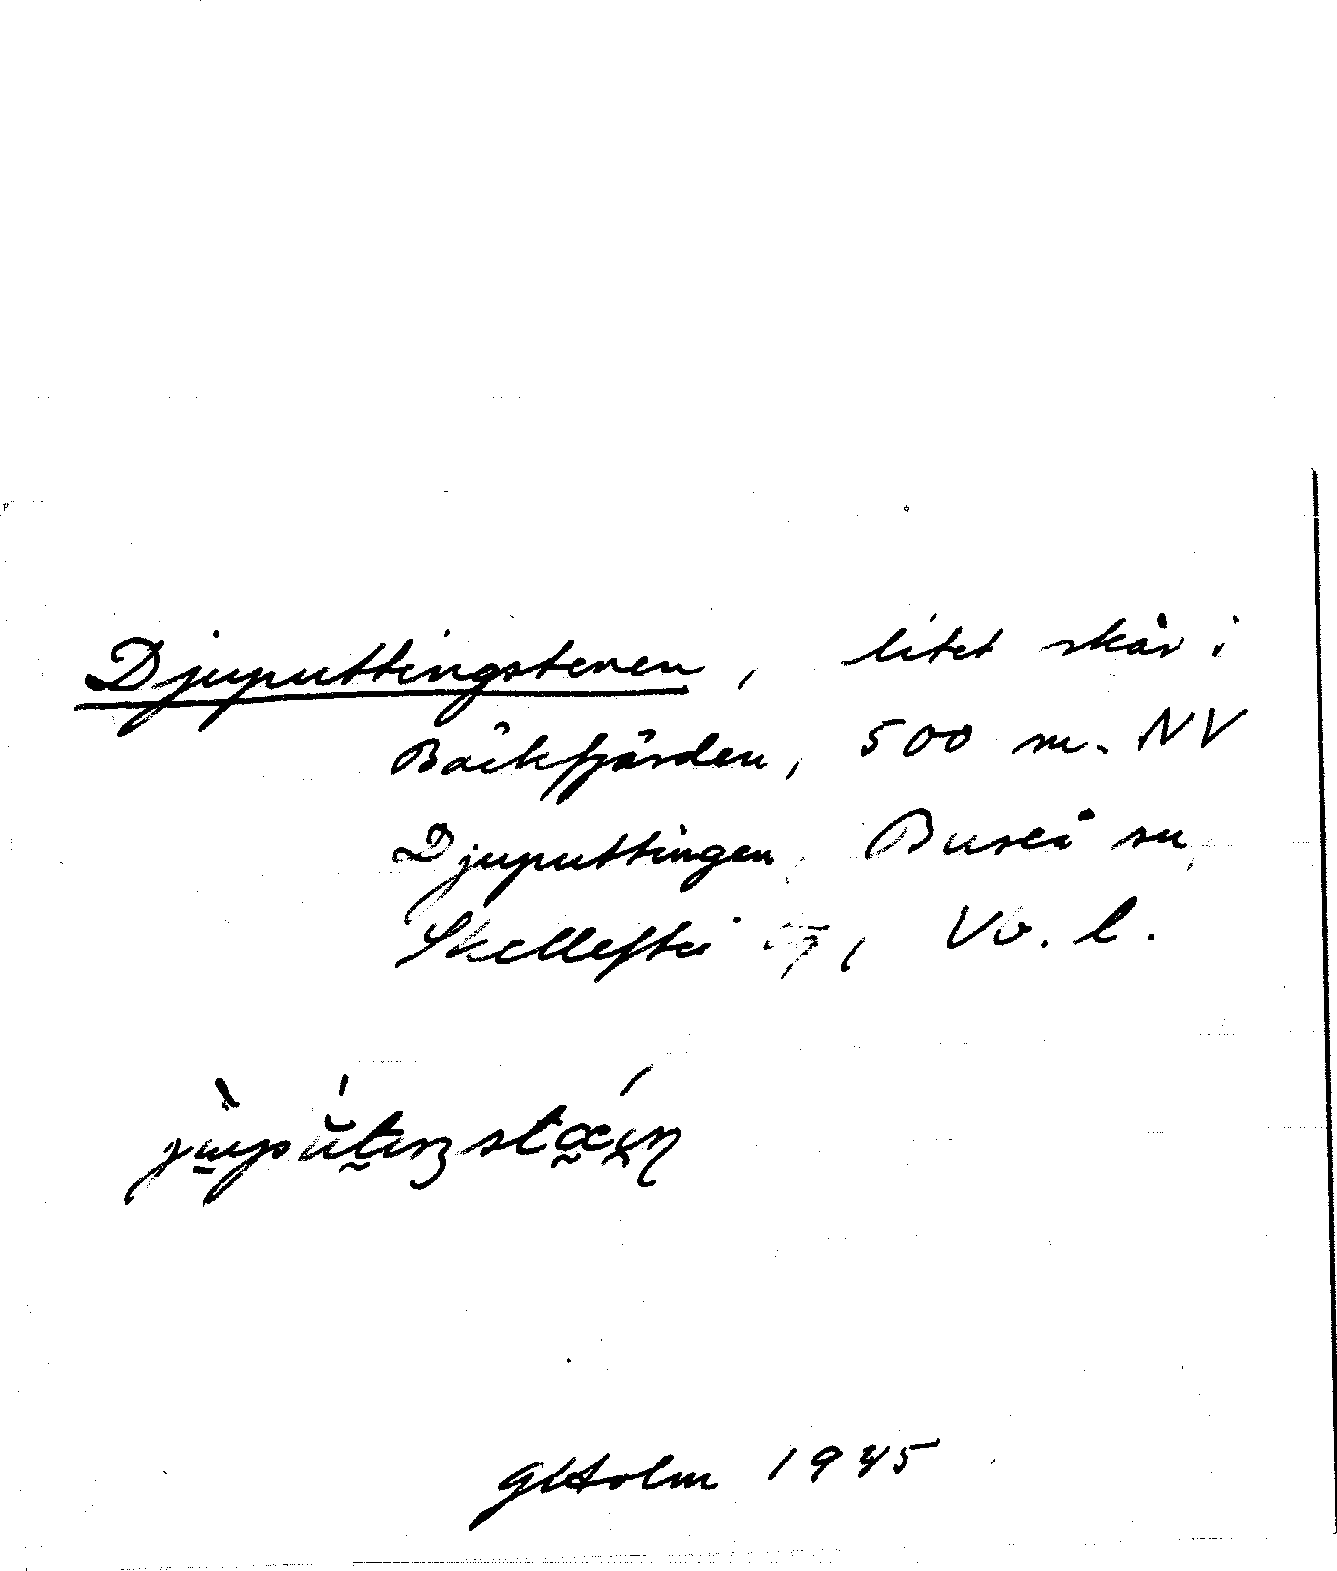 Djuputtingstenen, litet skär i
Bäckfjärden, 500 m. NV
Djuputtingen, Bureå sn,
Skellefteå tg, Vb. l.
GHolm 1945